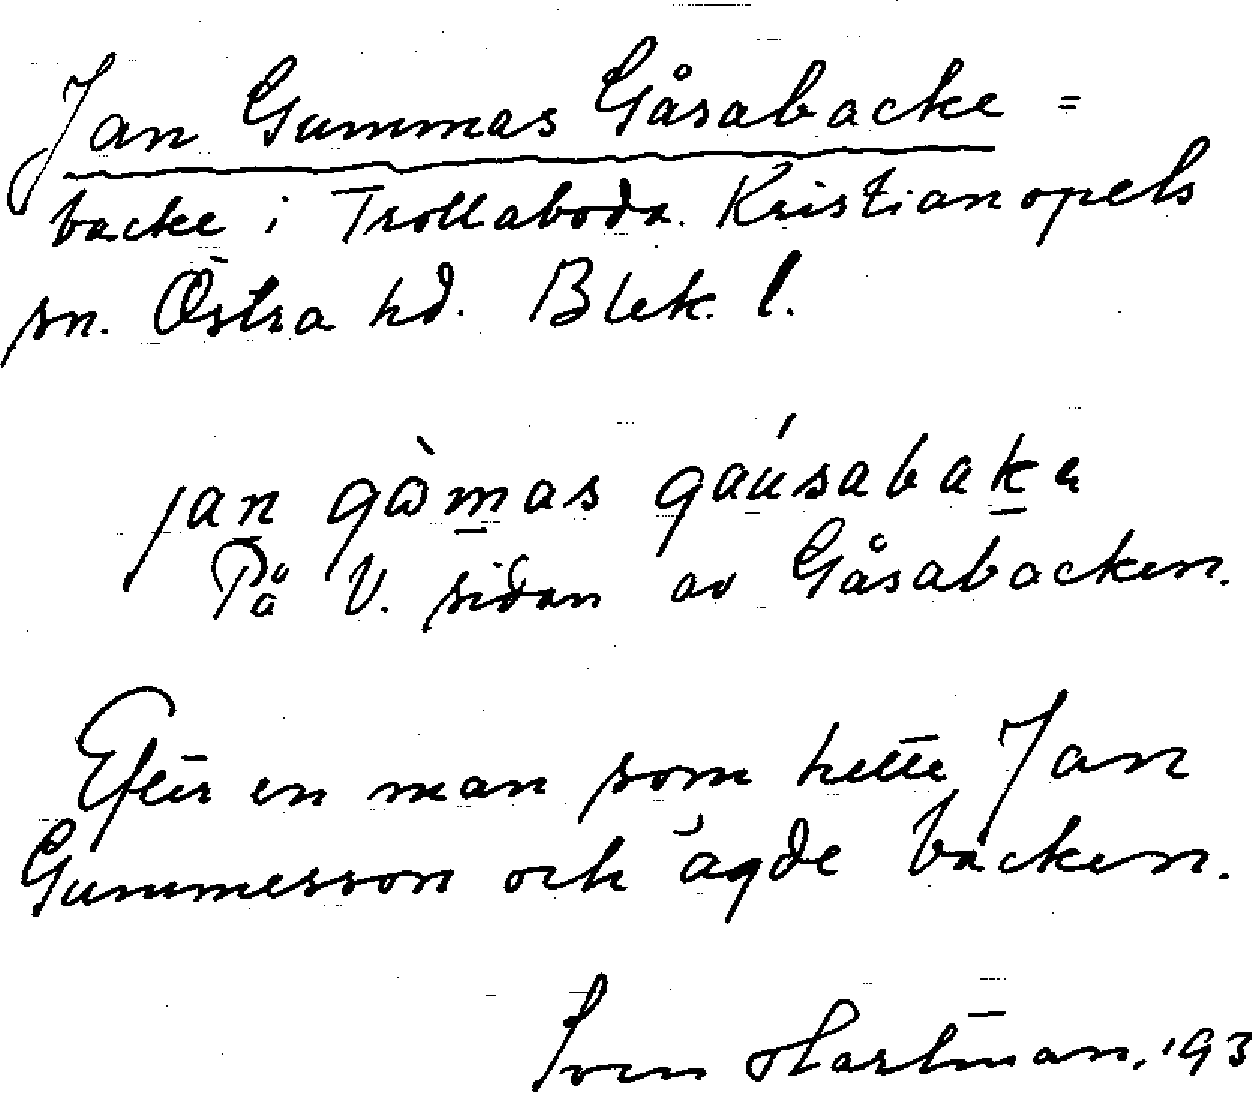 Jan Gummas Gåsabacke =
backe i Trollaboda. Kristianopels
sn. Östra hd. Blek. l.
jan gòmas gáusabaka
På V. sidan av Gåsabacken.
Efter en man som hette Jan
Gummesson och ägde backen.
Sven Hartman. 193